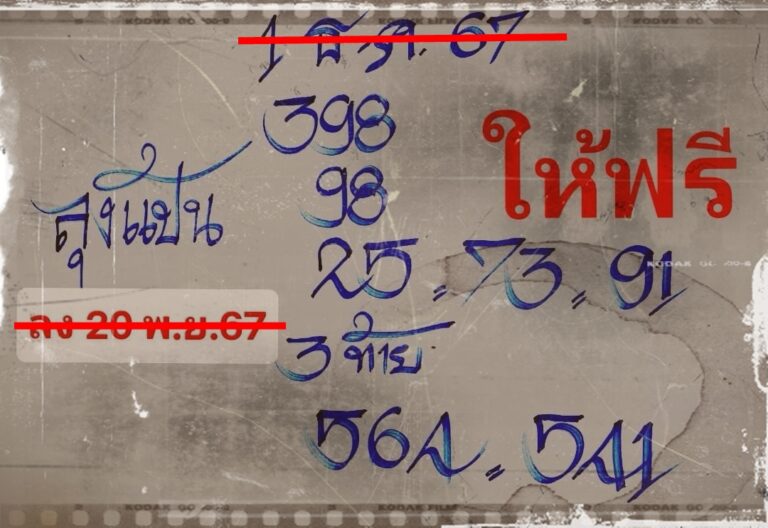 1 ธ.ค. 67
398
98
ให้ฟรี
ลุงแป้น
25 = 73 = 91
ลง 20 พ.ย.67
3 ท้าย
564 = 541
KODAK GC 200-2